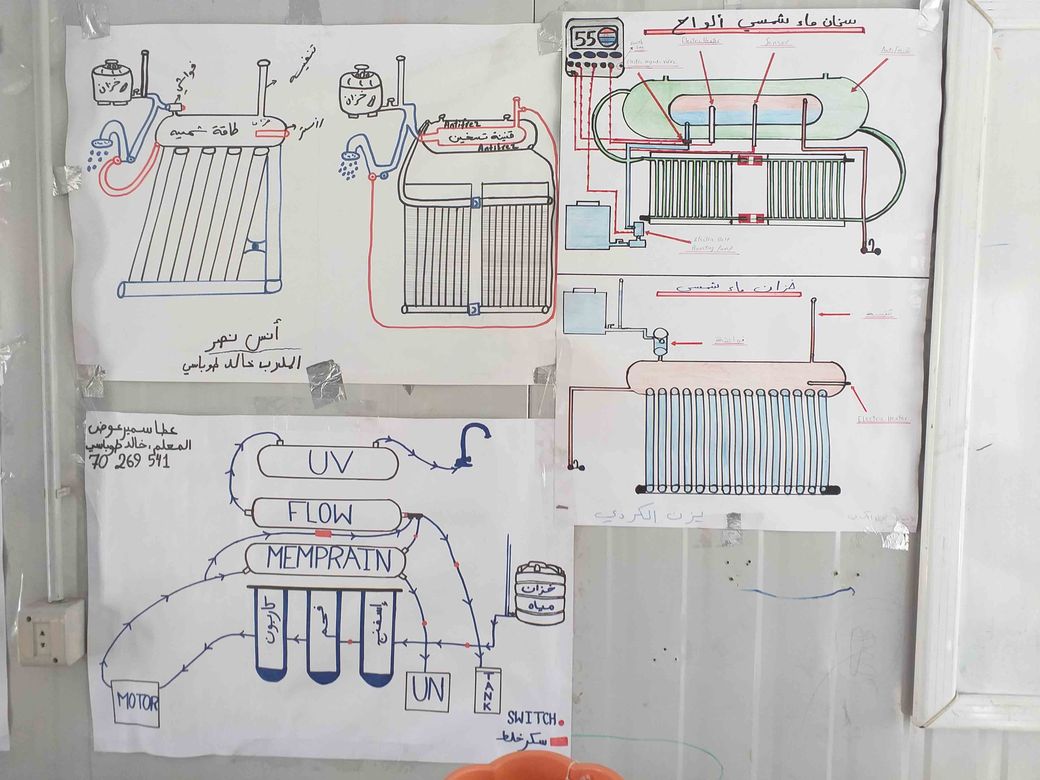 خزان
طاقة شمسية
خزان
Antifrez
قنينة تسخين
Antifrez
أنس نصر
المدرب خالد طوباسي
سخان ماء شمسي ألواح
550
Electric Heater
Sensor
Antifreeze
خزان ماء شمسي
Electric Heater
يزن الكردي
عطا سمير عوض
المعلم: خالد طوباسي
70 269 541
UV
FLOW
MEMPRAIN
كاربون
فحم
إسفنج
خزان
مياه
MOTOR
UN
TANK
SWITCH
سكر خلط